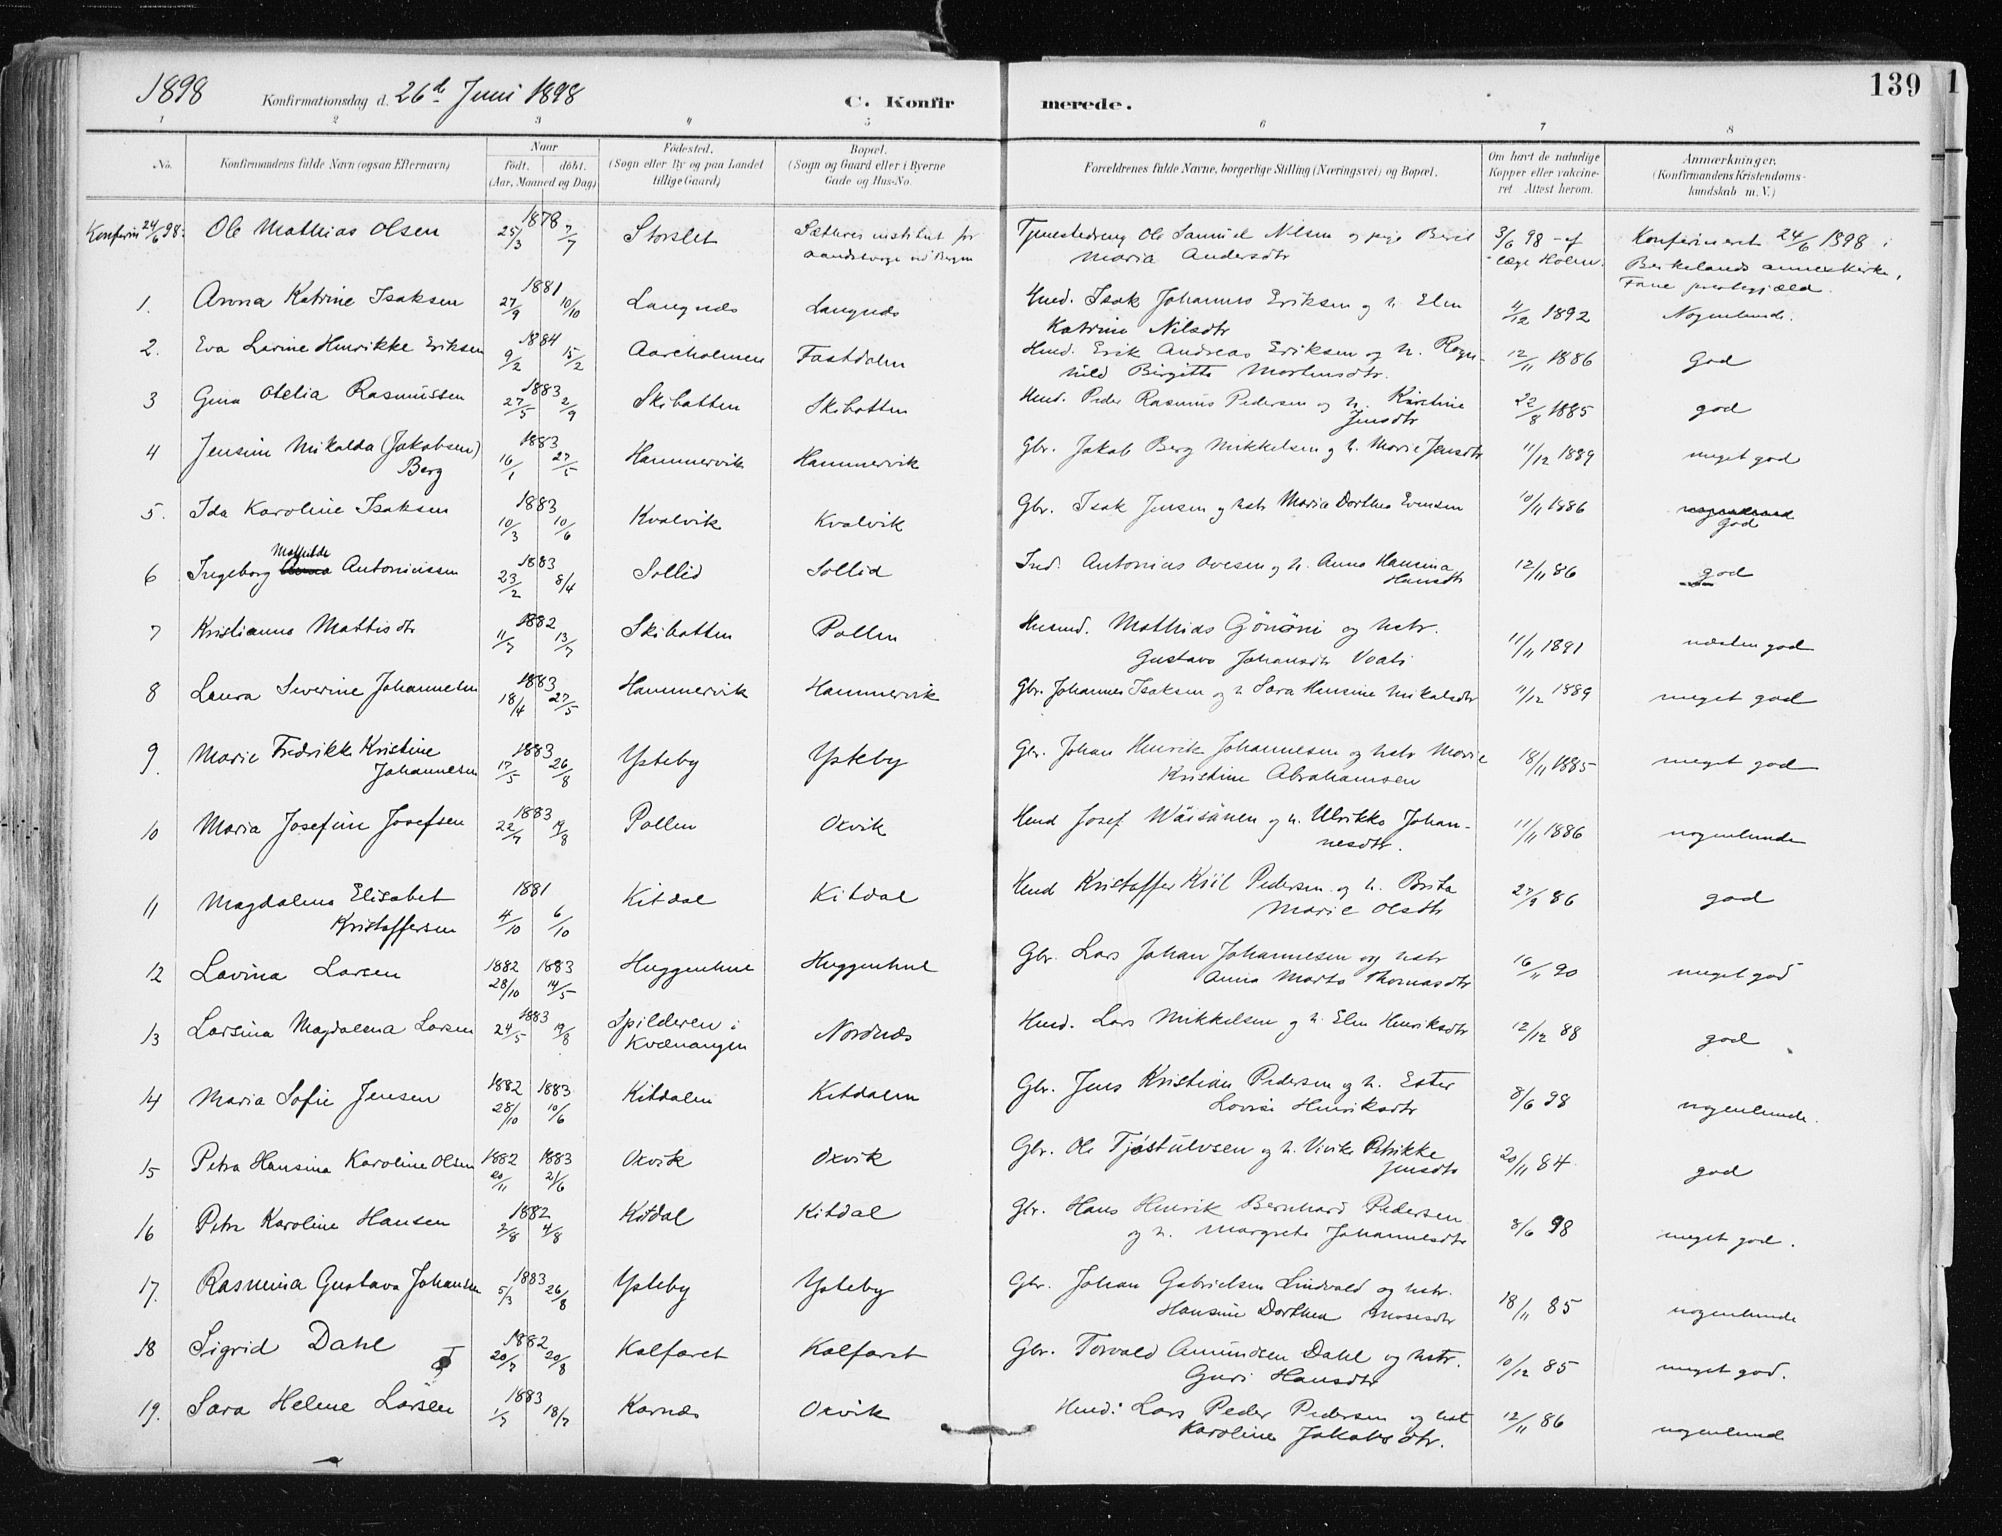 1898 Konfirmationsdag d. 26de Juni 1898 C. Konfirmerede. 139
1 2 3 4 5 6 7 8
No. Konfirmandens fulde Navn (ogsaa Efternavn) Naar født. døbt. (Aar, Maaned og Dag) Fødested. (Sogn eller By og paa Landet tillige Gaard) Bopæl. (Sogn og Gaard eller i Byerne Gade og Hus-No. Forældrenes fulde Navne, borgerlige Stilling (Næringsvei) og Bopæl. Om havt de naturlige Kopper eller vakcineret Attest herom. Anmærkninger. (Konfirmandens Kristendomskundskab m. V.)
Konfirm 24/6 98. Ole Mathias Olsen 1878 25/3 7/7 Storslet Sæthres institut for aandssvage ved Bergen Tjenestedreng Ole Samuel Nilsen og pige Berit Maria Andersdtr 3/6 98 - af læge Holm. Konfirmeret 24/6 1898 i Birkelands annexkirke, Fane præstegjæld.
1. Anna Katrine Isaksen 1881 27/9 10/10 Langnæs Langnæs Hmd. Isak Johannes Eriksen og h. Elen Katrine Nilsdtr 4/12 1892 Nogenlunde.
2. Eva Lavine Henrikke Eriksen 1884 9/2 15/2 Aareholmen Fastdalen Hmd. Erik Andreas Eriksen og h. Ragnhild Birgitte Mortensdtr. 12/11 1886 God
3 Gina Otelia Rasmussen 1883 27/5 2/9 Skibotten Skibotten Hmd. Peder Rasmus Pedersen og h. Kirstine Jensdtr 22/8 1885 god
4 Jensine Mikalda (Jakobsen) Berg 1883 16/1 27/5 Hammervik Hammervik Gbr. Jakob Berg Mikkelsen og h. Marie Jensdtr 11/12 1889 meget god
5. Ida Karoline Isaksen 1883 10/3 10/6 Kvalvik Kvalvik Gbr. Isak Jensen og hstr Maria Dorthea Evensen 10/11 1886 god
6 Ingeborg Mathilde Anna Antoniussen 1883 23/2 8/4 Sollid Sollid Ind. Antonius Ovesen og h. Anna Hansina Hansdtr 12/11 86 god
7 Kristianna Mattisdtr 1882 11/7 13/7 Skibotten Pollen Husmd. Mathias Gönöni og hstr. Gustava Johansdtr Voati 11/11 1891 næsten god
8 Laura Severine Johannesen 1883 18/4 27/5 Hammervik Hammervik Gbr. Johannes Isaksen og h Sara Hansine Mikalsdtr 11/12 1889 meget god
9. Marie Fredrikke Kristine Johannesen 1883 17/5 26/8 Ysteby Ysteby Gbr. Johan Henrik Johannesen og hstr Marie Kristine Abrahamsen 18/11 1885 meget god
10 Maria Josefine Josefsen 1883 22/7 19/8 Pollen Oxvik Hmd Josef Wäisänen og h. Ulrikke Johannesdtr. 11/11 1886 nogenlunde
11 Magdalena Elisabet Kristoffersen 1881 4/10 6/10 Kitdal Kitdal Hmd Kristoffer Kiil Pedersen og h. Brita Marie Olsdtr 27/9 86 god
12 Lovina Larsen 1882 28/10 1883 14/5 Huggenhul Huggenhul Gbr. Lars Johan Johannesen og hstr Anna Marta Thomasdtr 16/11 90 meget god
13 Larsina Magdalena Larsen 1883 24/5 19/8 Spilderen i Kvænangen Nordnæs Hmd. Lars Mikkelsen og h. Elen Henriksdtr 12/12 88 god
14 Maria Sofie Jensen 1882 28/10 1883 10/6 Kitdalen Kitdalen Gbr. Jens Kristian Pedersen og h. Ester Lovise Henriksdtr 8/6 98 nogenlunde.
15 Petra Hansina Karoline Olsen 1882 20/11 1883 21/6 Oxvik Oxvik Gbr. Ole Tjøstulvsen og h. Vivike Petrikke Jensdtr 20/11 84. god
16 Petra Karoline Hansen 1882 2/8 4/8 Kitdal Kitdal Gbr. Hans Henrik Bernhard Pedersen og h. Margrete Johannesdtr 8/6 98 meget god.
17. Rasmina Gustava Johansen 1883 5/3 26/8 Ysteby Ysteby Gbr. Johan Gabrielsen Lindvald og hstr. Hansine Dorthea Mosesdtr 18/11 85 nogenlunde
18 Sigrid Dahl 1882 20/7 20/8 Kalfaret Kalfaret Gbr. Torvald Amundsen Dahl og hstr. Guri Hansdtr 10/12 85 meget god.
19. Sara Helene Larsen 1883 1/7 18/7 Karnæs Oxvik Hmd: Lars Peder Pedersen og hst Karoline Jakobsdtr. 12/11 86 nogenlunde